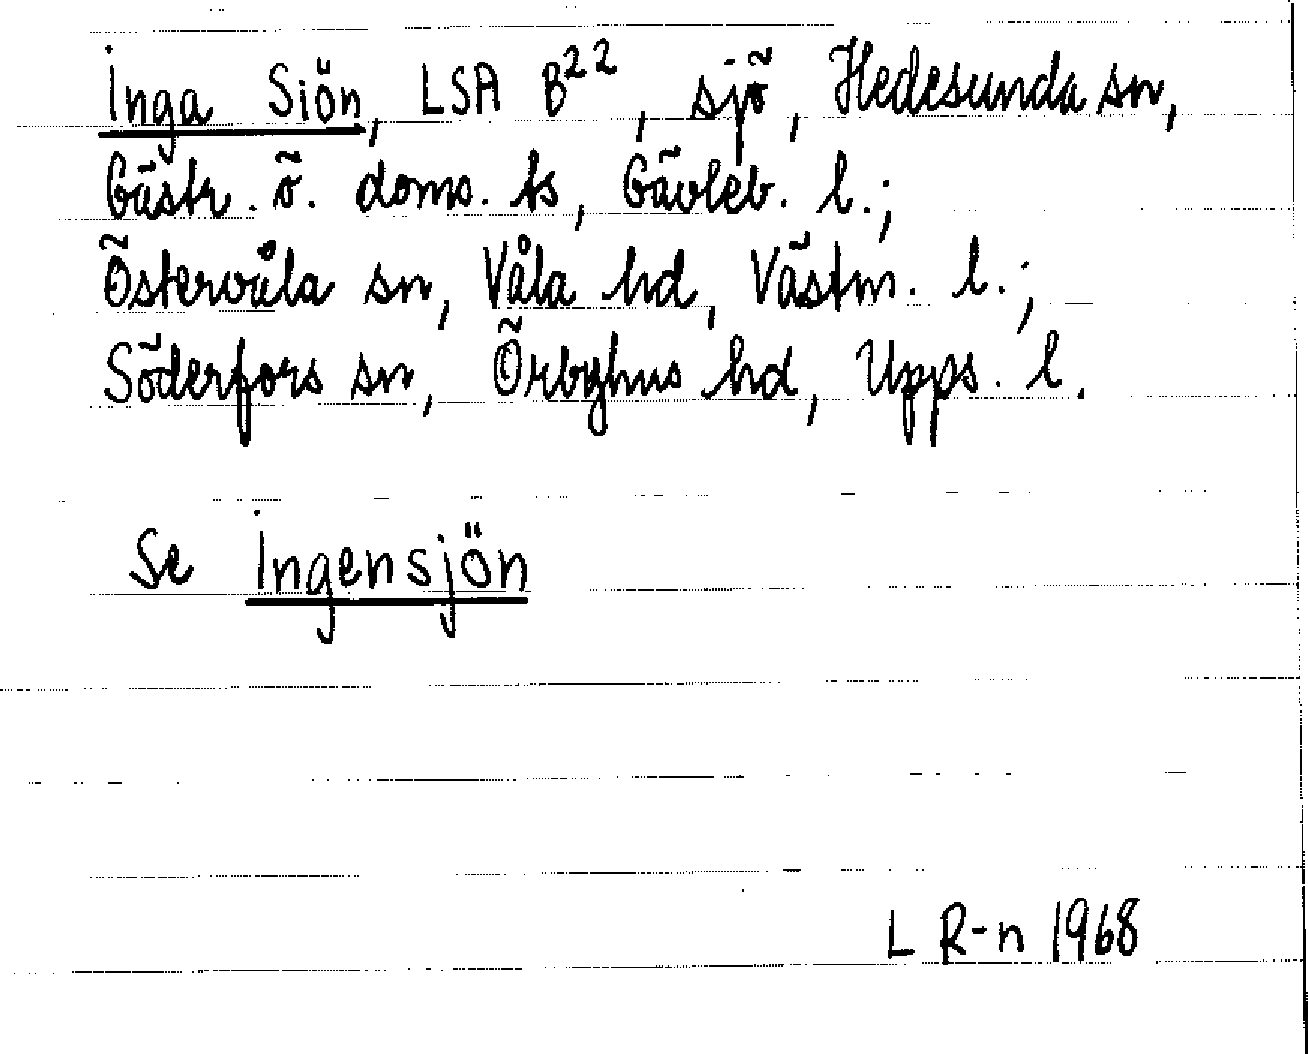 Inga Siön, LSA B²², sjö, Hedesunda sn,
Gästr. ö. doms. ts, Gävleb. l.;
Östervåla sn, Våla hd, Västm. l.;
Söderfors sn, Örbyhus hd, Upps. l.
Se Ingensjön
L R-n 1968